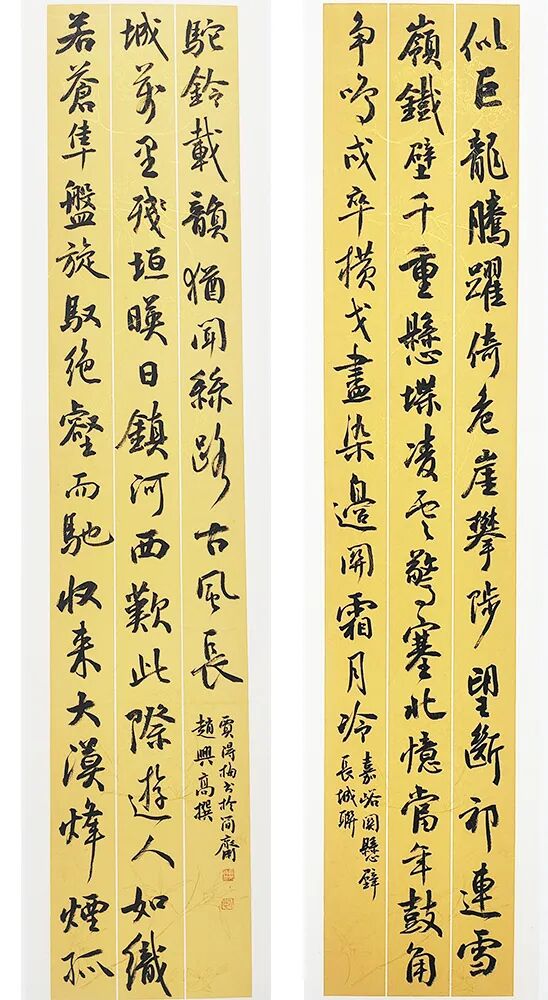 似巨龍騰躍倚危崖攀陟望斷祁連雪
嶺鐵壁千重懸堞凌雲驚塞北憶當年鼓角
争鳴戍卒横戈盡染邊關霜月冷
嘉峪關懸壁
長城聯
若蒼隼盤旋馭絶壑而馳收来大漠烽煙孤
城萬里殘垣暎日鎮河西歎此際遊人如織
駝鈴載韻猶聞絲路古風長
趙興高撰
賈得书於簡齋